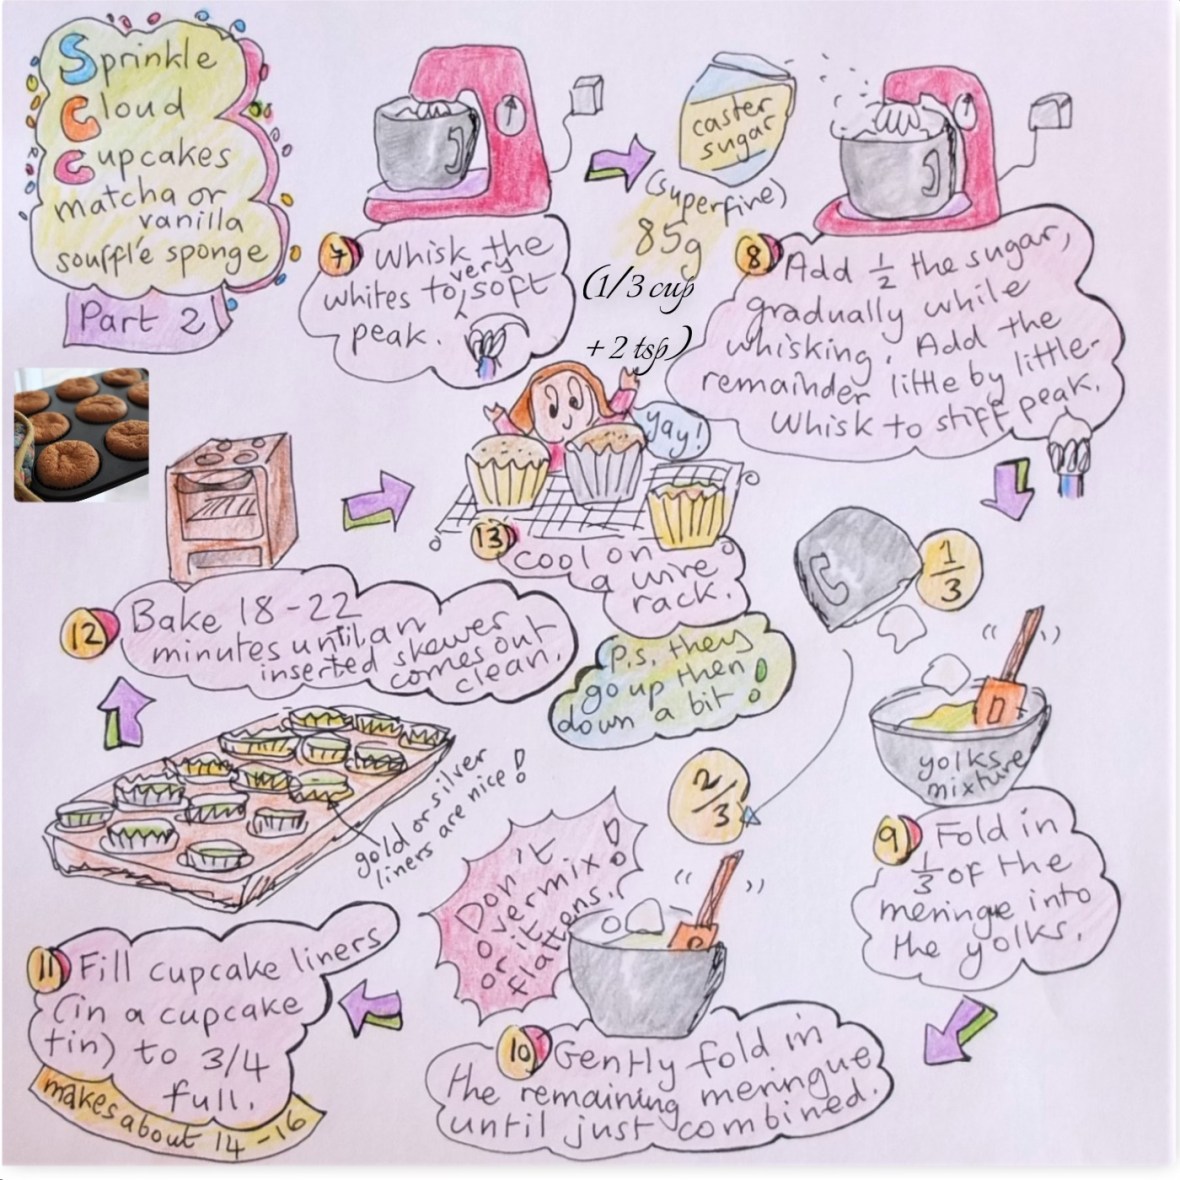 Sprinkle
Cloud
Cupcakes
matcha or
vanilla
soufflé sponge
Part 2
7
Whisk the
whites to very soft
peak.
caster
sugar
(superfine)
85g
(1/3 cup
+ 2 tsp)
8
Add 1/2 the sugar,
gradually while
whisking. Add the
remainder little by little.
Whisk to stiff peak.
1/3
yolks
mixture
9
Fold in
1/3 of the
meringe into
the yolks.
2/3
Don't
overmix
or it
flattens!
10
Gently fold in
the remaining meringue
until just combined.
11
Fill cupcake liners
(in a cupcake
tin) to 3/4
full.
makes about 14-16
gold or silver
liners are nice!
12
Bake 18-22
minutes until an
inserted skewer
comes out
clean.
yay!
13
Cool on
a wire
rack.
P.s. they
go up then
down a bit!